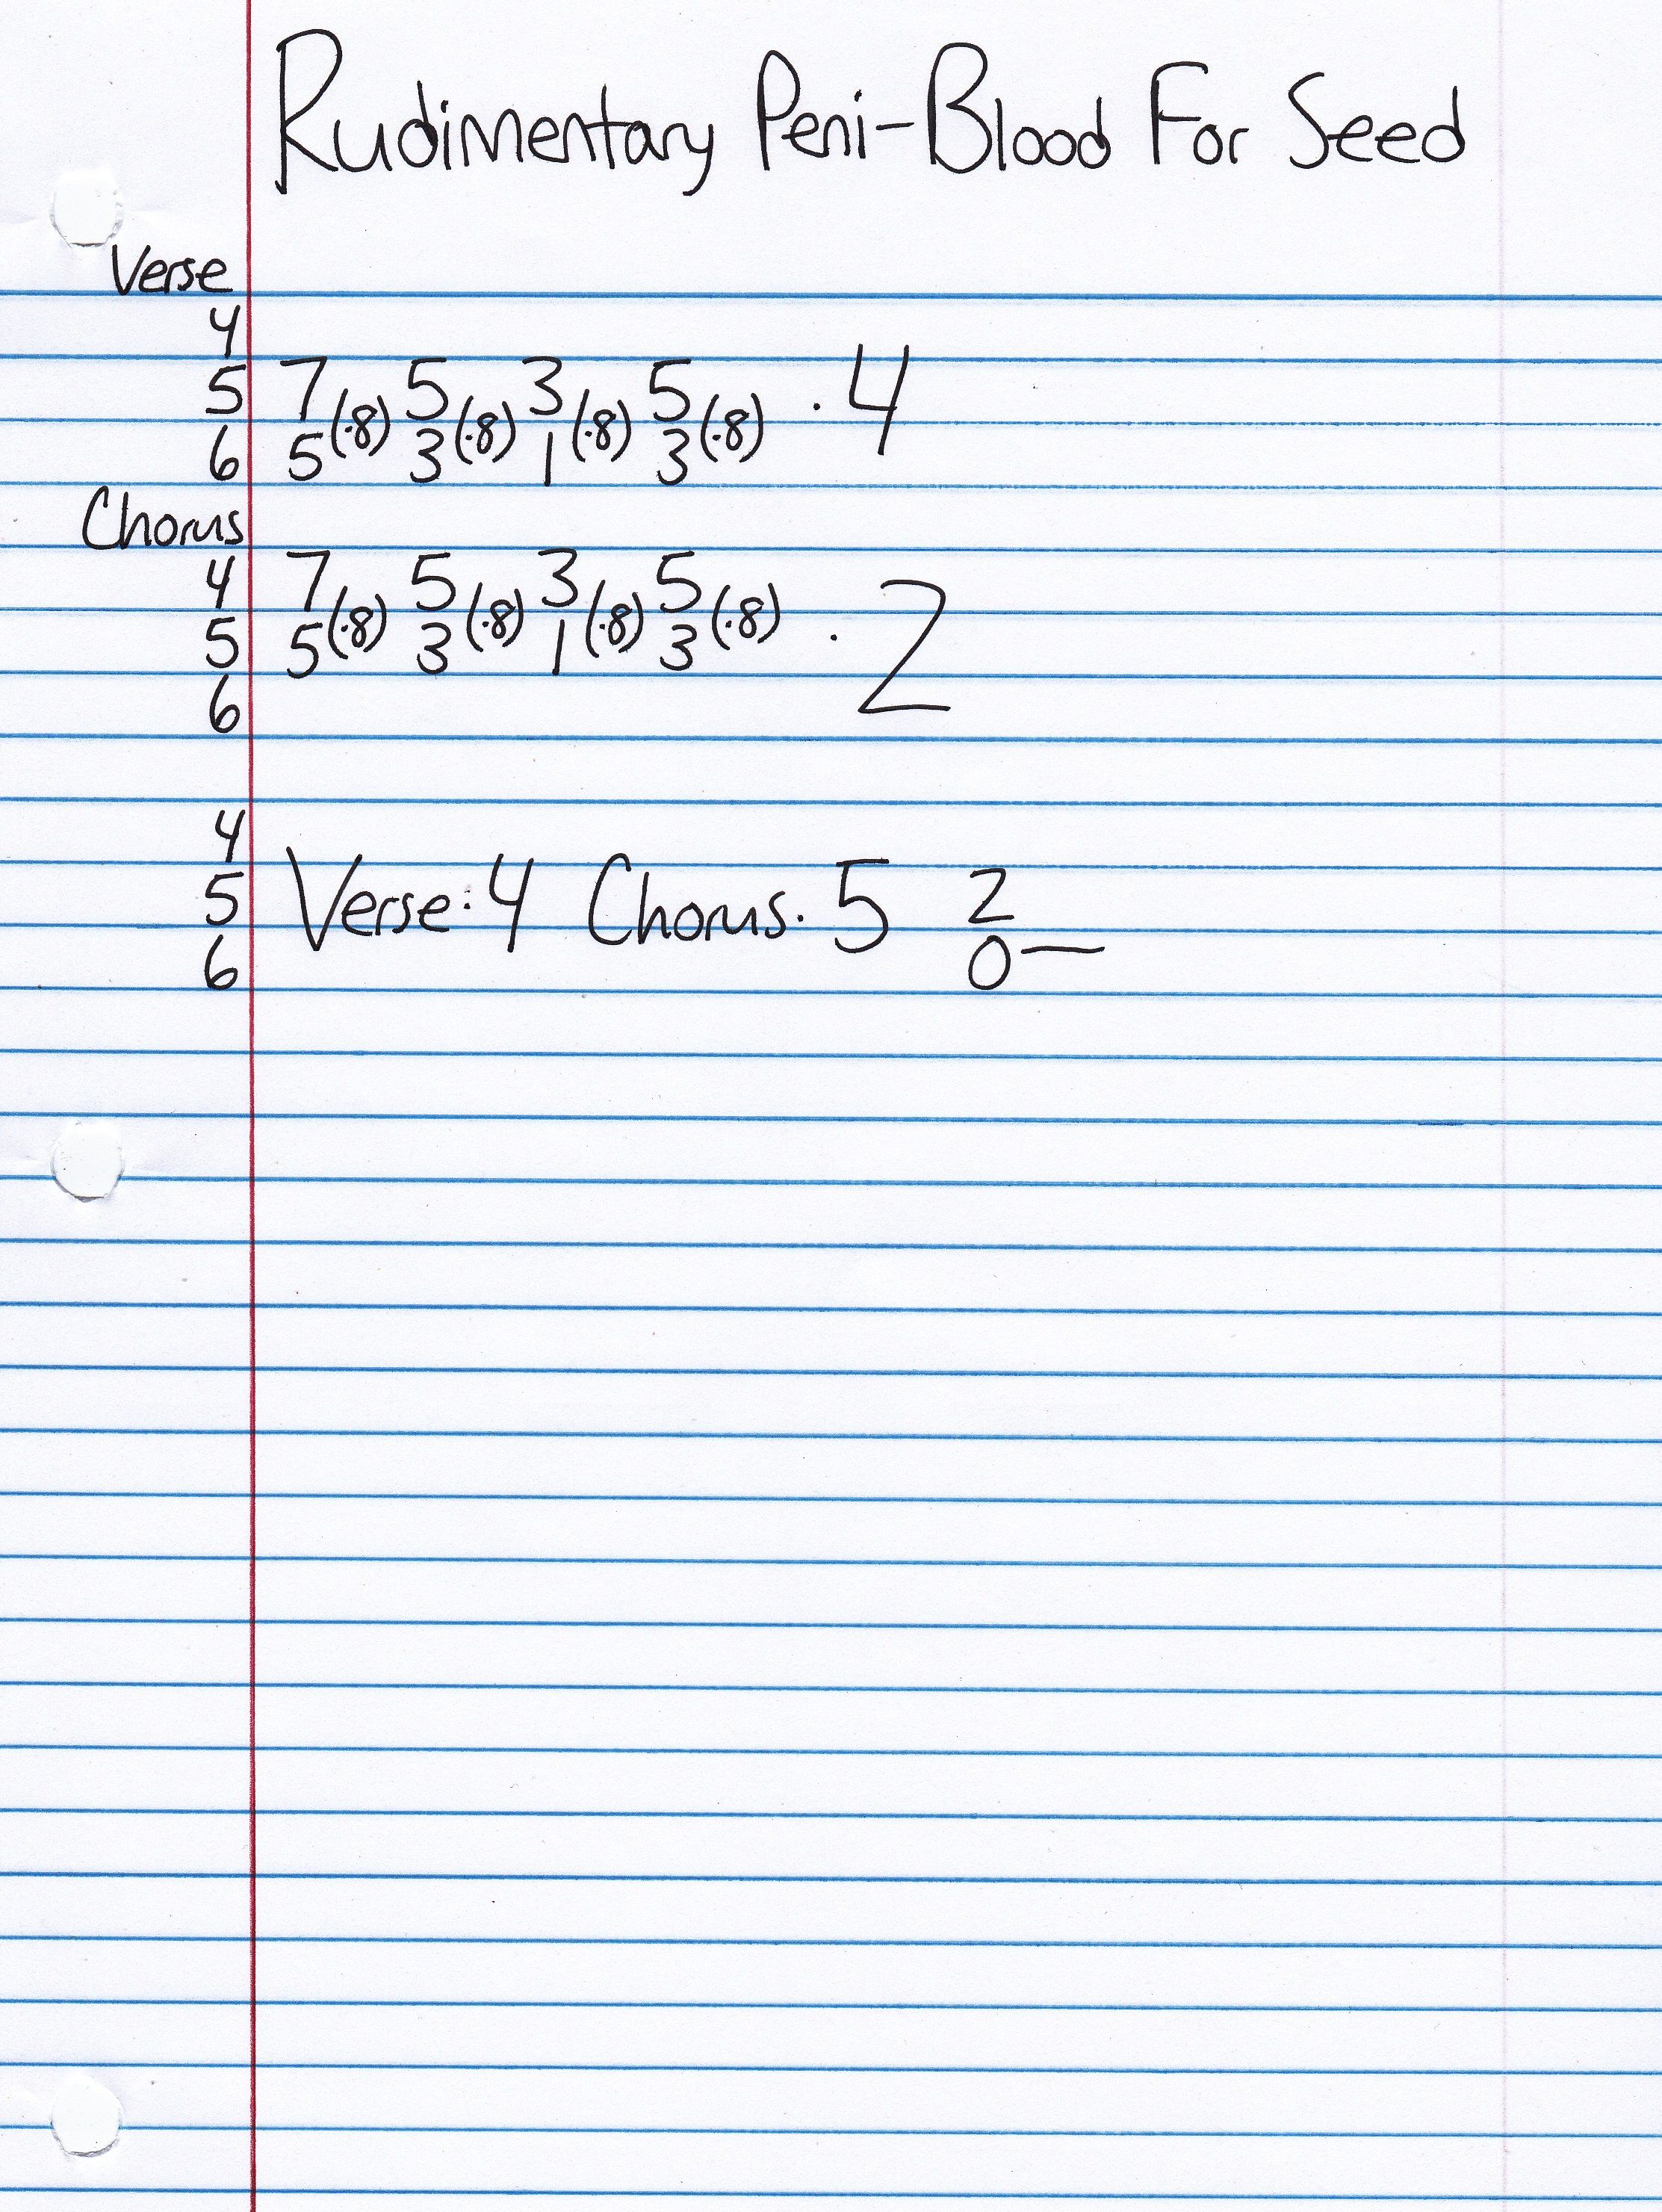 Rudimentary Peni-Blood For Seed
Verse
4
5 7(·8) 5(·8) 3(·8) 5(·8) · 4
6 5 3 1 3
Chorus
4 7(·8) 5(·8) 3(·8) 5(·8) · 2
5 5 3 1 3
6
4
5 Verse:4 Chorus· 5 2
6 0—